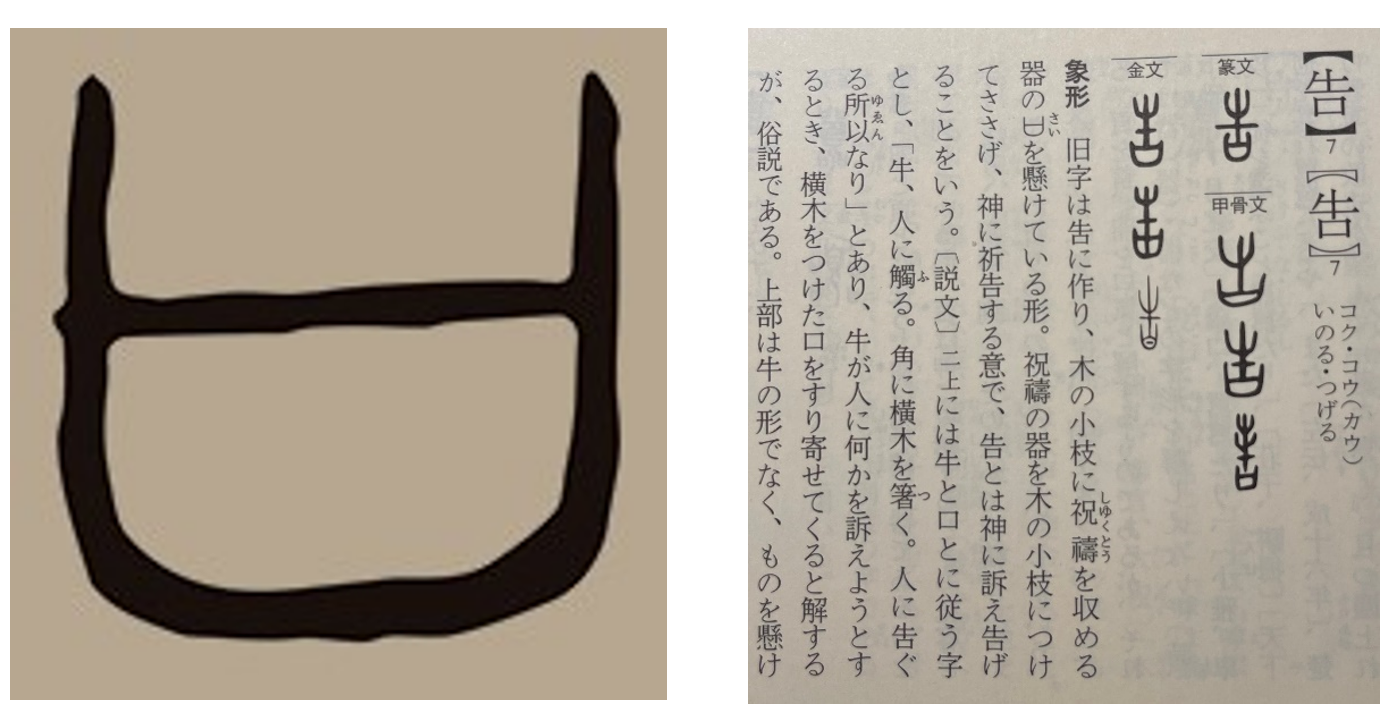 【告】7 〔吿〕7 コク・コウ(カウ)
いのる・つげる
篆文
甲骨文
金文
象形 旧字は吿に作り、木の小枝に祝禱を収める
しゅくとう
器の𠙵を懸けている形。祝禱の器を木の小枝につけ
さい
てささげ、神に祈告する意で、告とは神に訴え告げ
ることをいう。〔説文〕二上には牛と口とに従う字
とし、「牛、人に觸る。角に橫木を箸く。人に吿ぐ
ふ
つ
る所以なり」とあり、牛が人に何かを訴えようとす
ゆゑん
るとき、横木をつけた口をすり寄せてくると解する
が、俗説である。上部は牛の形でなく、ものを懸け